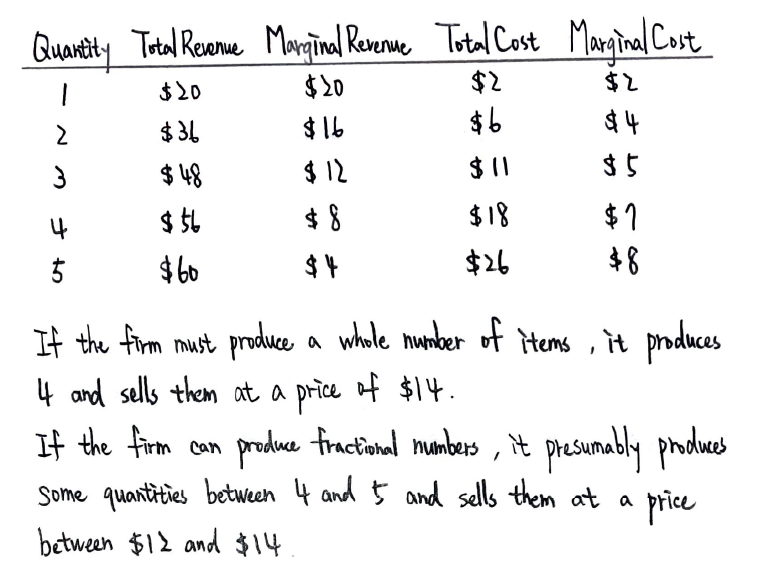 Quantity Total Revenue Marginal Revenue Total Cost Marginal Cost
1 $20 $20 $2 $2
2 $36 $16 $6 $4
3 $48 $12 $11 $5
4 $56 $8 $18 $7
5 $60 $4 $26 $8
If the firm must produce a whole number of items, it produces
4 and sells them at a price of $14.
If the firm can produce fractional numbers, it presumably produces
some quantities between 4 and 5 and sells them at a price
between $12 and $14.